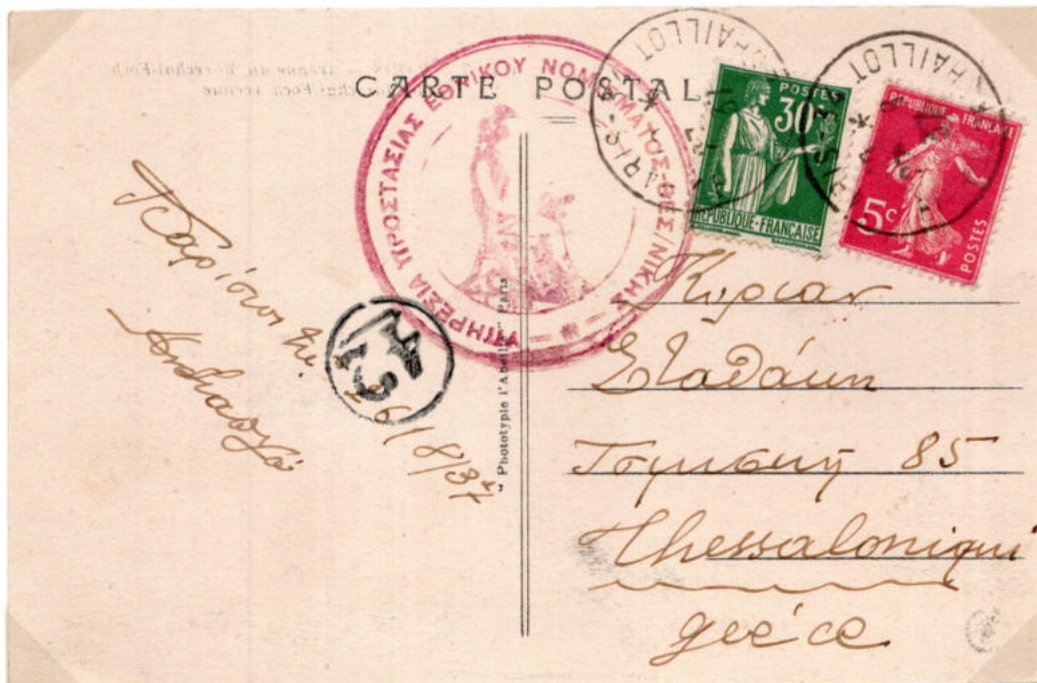 CARTE POSTALE
ΥΠΗΡΕΣΙΑ ΠΡΟΣΤΑΣΙΑΣ ΕΘΝΙΚΟΥ ΝΟΜΙΣΜΑΤΟΣ-ΘΕΣ/ΝΙΚΗΣ
PARIS CHAILLOT
POSTES
30c
REPUBLIQUE-FRANÇAISE
REPUBLIQUE FRANÇAISE
5c
POSTES
Παρίσιοι τη. 26/8/37
" Phototypie l'Abeille" Paris
Κυρίαν
Σταθάκη
Τσιμισκή 85
Thessaloniqui
grèce